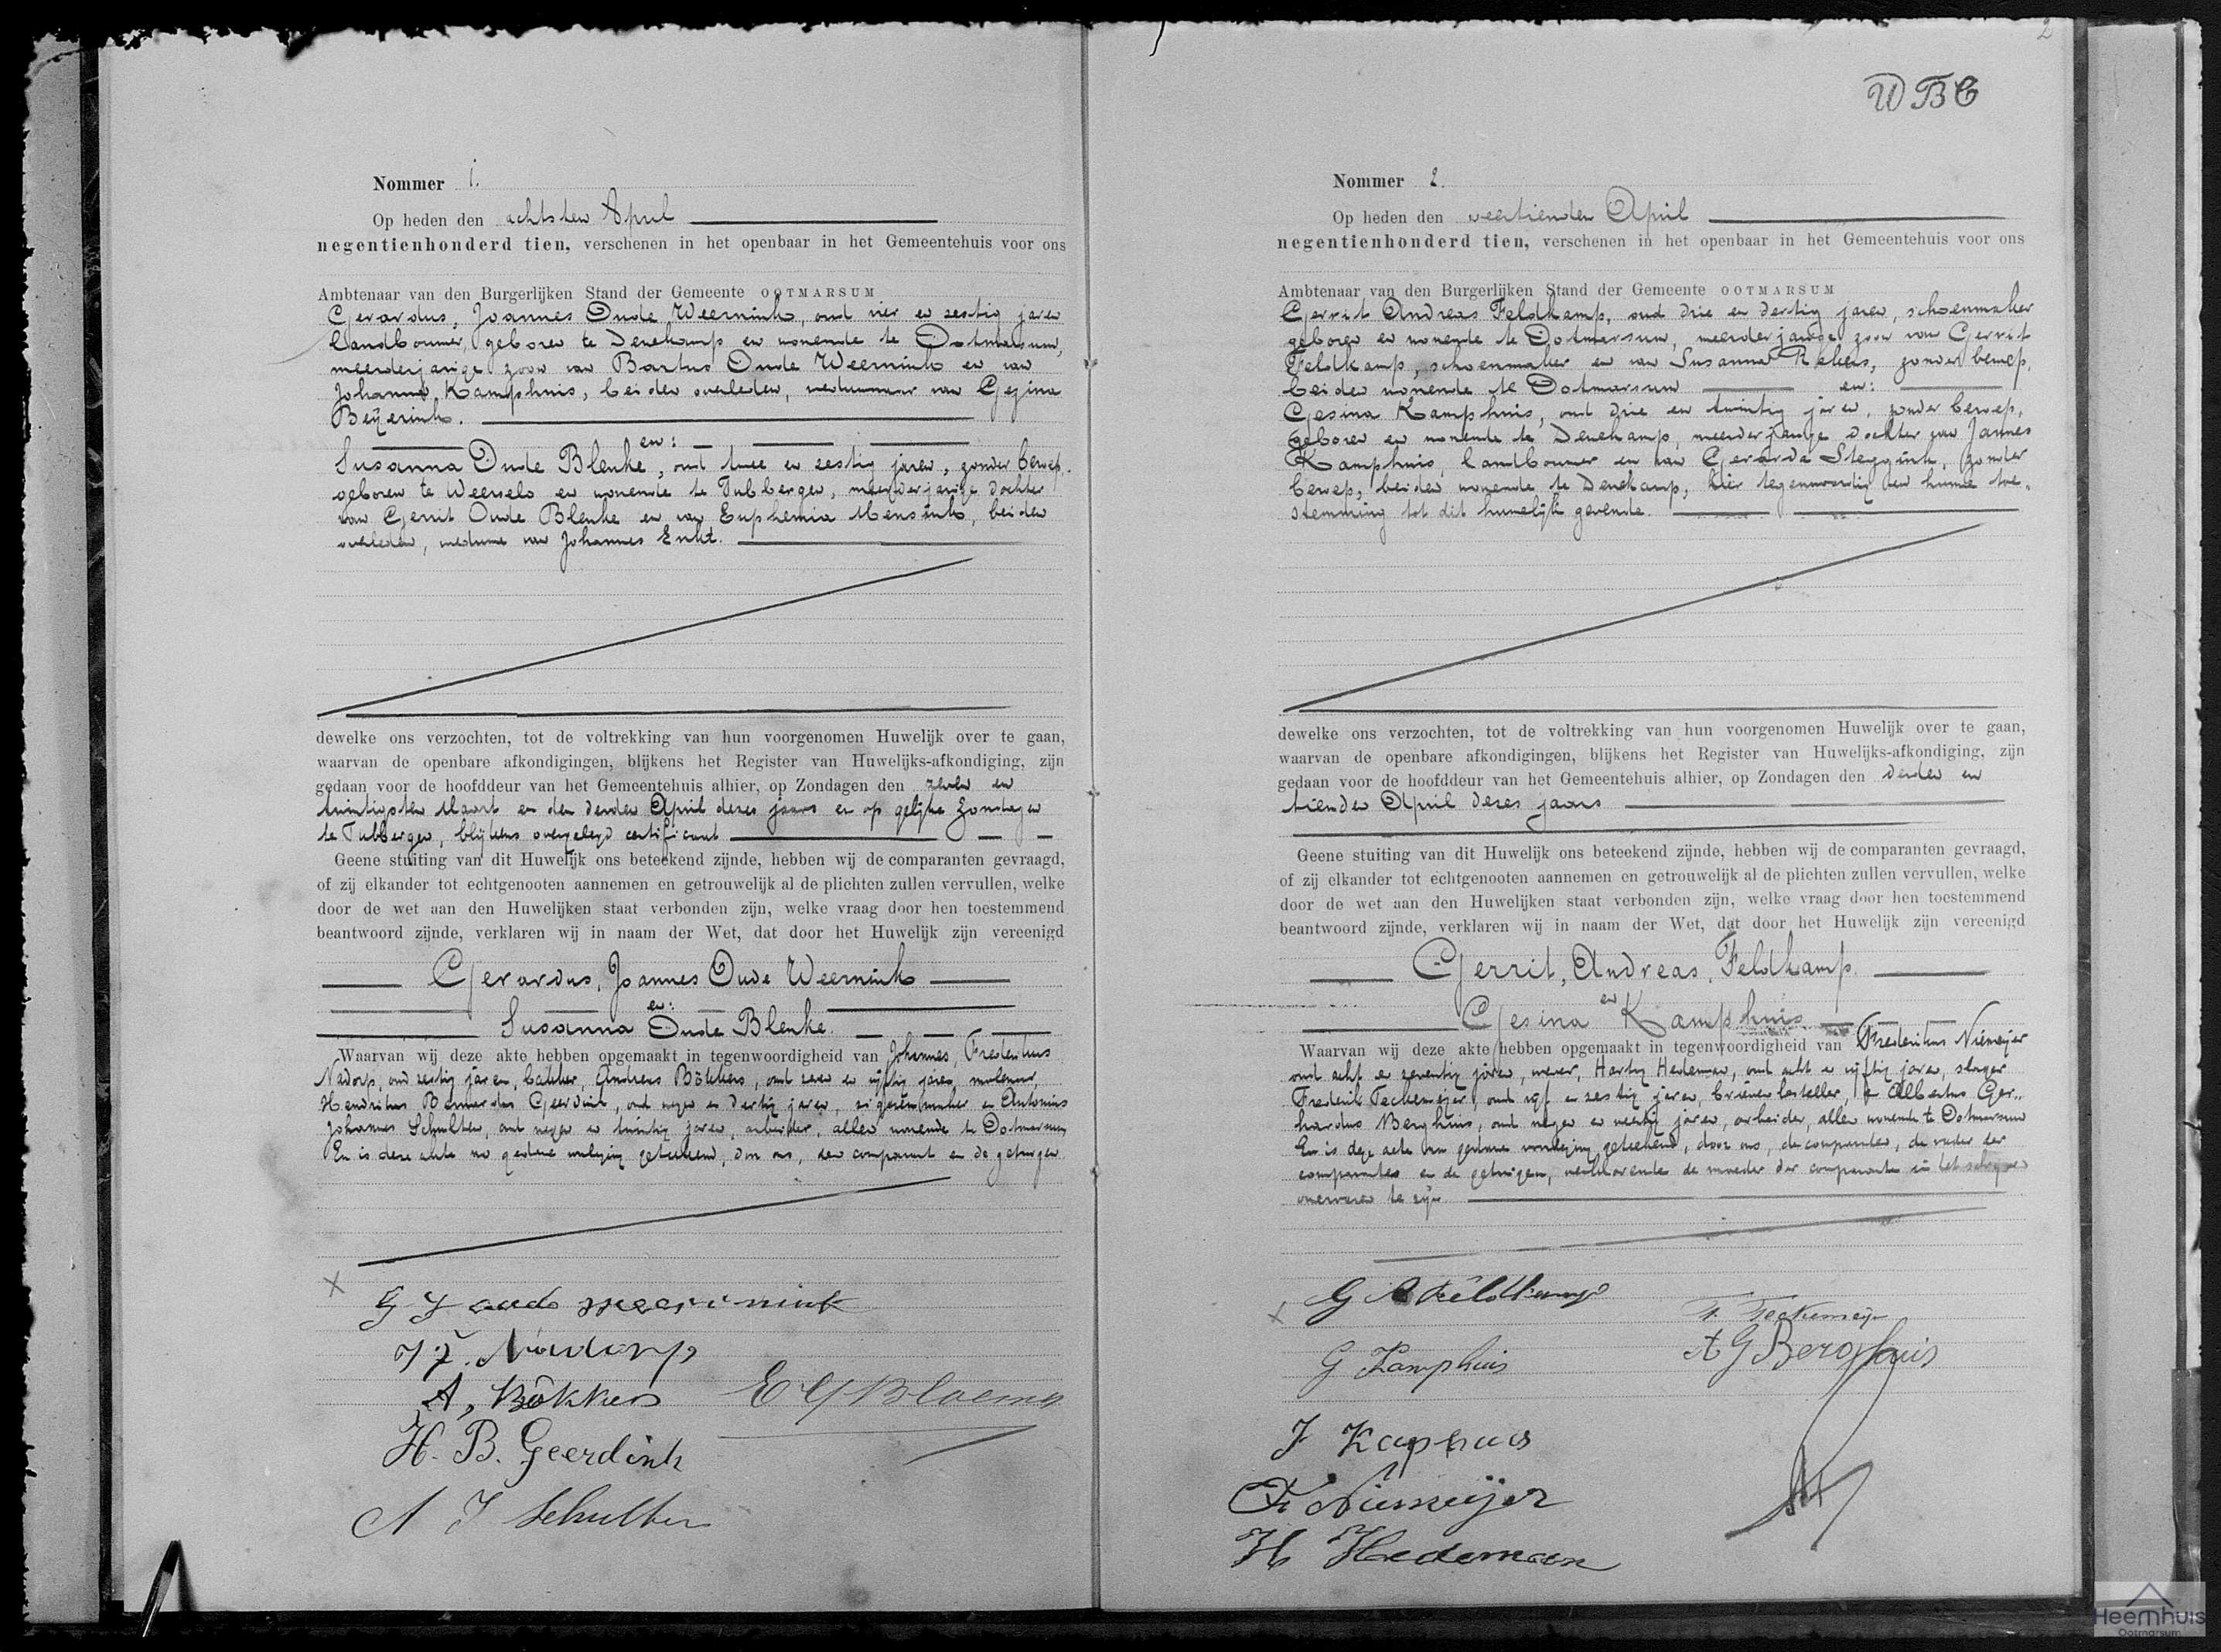 Nommer 1.
Op heden den achtsten April
negentienhonderd tien, verschenen in het openbaar in het Gemeentehuis voor ons
Ambtenaar van den Burgerlijken Stand der Gemeente OOTMARSUM
Gerardus, Joannes Oude Weernink, oud vier en zestig jaren
landbouwer, geboren te Denekamp en wonende te Ootmarsum,
meerderjarige zoon van Bartus Oude Weernink en van
Johanna Kamphuis, beiden overleden, weduwnaar van Gezina
Beijerink.
en:
Susanna Oude Blenke, oud twee en zestig jaren, zonder beroep.
geboren te Weerselo en wonende te Tubbergen, meerderjarige dochter
van Gerrit Oude Blenke en van Euphemia Mensink, beiden
overleden, weduwe van Johannes Enkt.
dewelke ons verzochten, tot de voltrekking van hun voorgenomen Huwelijk over te gaan,
waarvan de openbare afkondigingen, blijkens het Register van Huwelijks-afkondiging, zijn
gedaan voor de hoofddeur van het Gemeentehuis alhier, op Zondagen den zeven en
twintigsten Maart en den derden April dezes jaars en op gelijke Zondagen
te Tubbergen, blijkens overgelegd certificaat
Geene stuiting van dit Huwelijk ons beteekend zijnde, hebben wij de comparanten gevraagd,
of zij elkander tot echtgenooten aannemen en getrouwelijk al de plichten zullen vervullen, welke
door de wet aan den Huwelijken staat verbonden zijn, welke vraag door hen toestemmend
beantwoord zijnde, verklaren wij in naam der Wet, dat door het Huwelijk zijn vereenigd
Gerardus, Joannes Oude Weernink
en:
Susanna Oude Blenke.
Waarvan wij deze akte hebben opgemaakt in tegenwoordigheid van Johannes, Frederikus
Nadorp, oud zestig jaren, bakker, Andreas Bökkers, oud zeven en vijftig jaren, molenaar,
Hendrikus Bernardus Geerdink, oud negen en dertig jaren, sigarenmaker en Antonius
Johannes Schulten, oud negen en twintig jaren, arbeider, allen wonende te Ootmarsum
En is deze akte na gedane voorlezing geteekend, door ons, den comparant en de getuigen
G J oude weernink
J F. Nadorp
A, Bökkers
E G Bloemen
H. B. Geerdink
A J Schulten
2
WBC
Nommer 2.
Op heden den veertienden April
negentienhonderd tien, verschenen in het openbaar in het Gemeentehuis voor ons
Ambtenaar van den Burgerlijken Stand der Gemeente OOTMARSUM
Gerrit Andreas Feldkamp, oud drie en dertig jaren, schoenmaker
geboren en wonende te Ootmarsum, meerderjarige zoon van Gerrit
Feldkamp, schoenmaker en van Susanna, zonder beroep,
beiden wonende te Ootmarsum en:
Gesina Kamphuis, oud drie en twintig jaren, zonder beroep,
geboren en wonende te Denekamp, meerderjarige dochter van Jannes
Kamphuis, landbouwer en van Gerarda Steggink, zonder
beroep, beiden wonende te Denekamp, hier tegenwoordig en hunne toe-
stemming tot dit huwelijk gevende.
dewelke ons verzochten, tot de voltrekking van hun voorgenomen Huwelijk over te gaan,
waarvan de openbare afkondigingen, blijkens het Register van Huwelijks-afkondiging, zijn
gedaan voor de hoofddeur van het Gemeentehuis alhier, op Zondagen den derden en
tienden April dezes jaars
Geene stuiting van dit Huwelijk ons beteekend zijnde, hebben wij de comparanten gevraagd,
of zij elkander tot echtgenooten aannemen en getrouwelijk al de plichten zullen vervullen, welke
door de wet aan den Huwelijken staat verbonden zijn, welke vraag door hen toestemmend
beantwoord zijnde, verklaren wij in naam der Wet, dat door het Huwelijk zijn vereenigd
Gerrit, Andreas, Feldkamp.
en
Gesina Kamphuis
Waarvan wij deze akte hebben opgemaakt in tegenwoordigheid van Frederikus Niemeijer
oud acht en zeventig jaren, wever, Hartog Hedeman, oud acht en vijftig jaren, slager
Frederik Teckemeijer, oud vijf en zestig jaren, brievenbesteller, en Albertus Ger-
hardus Berghuis, oud negen en veertig jaren, arbeider, allen wonende te Ootmarsum
En is deze acte na gedane voorlezing geteekend, door ons, de comparanten, de vader der
comparante en de getuigen, verklarende de moeder der comparante in het schrijven
onervaren te zijn
G A Feldkamp
F. Teckemeijer
G Kamphuis
A G Berghuis
J Kaphuis
F Niemeijer
H Hedeman
Heemhuis
Ootmarsum